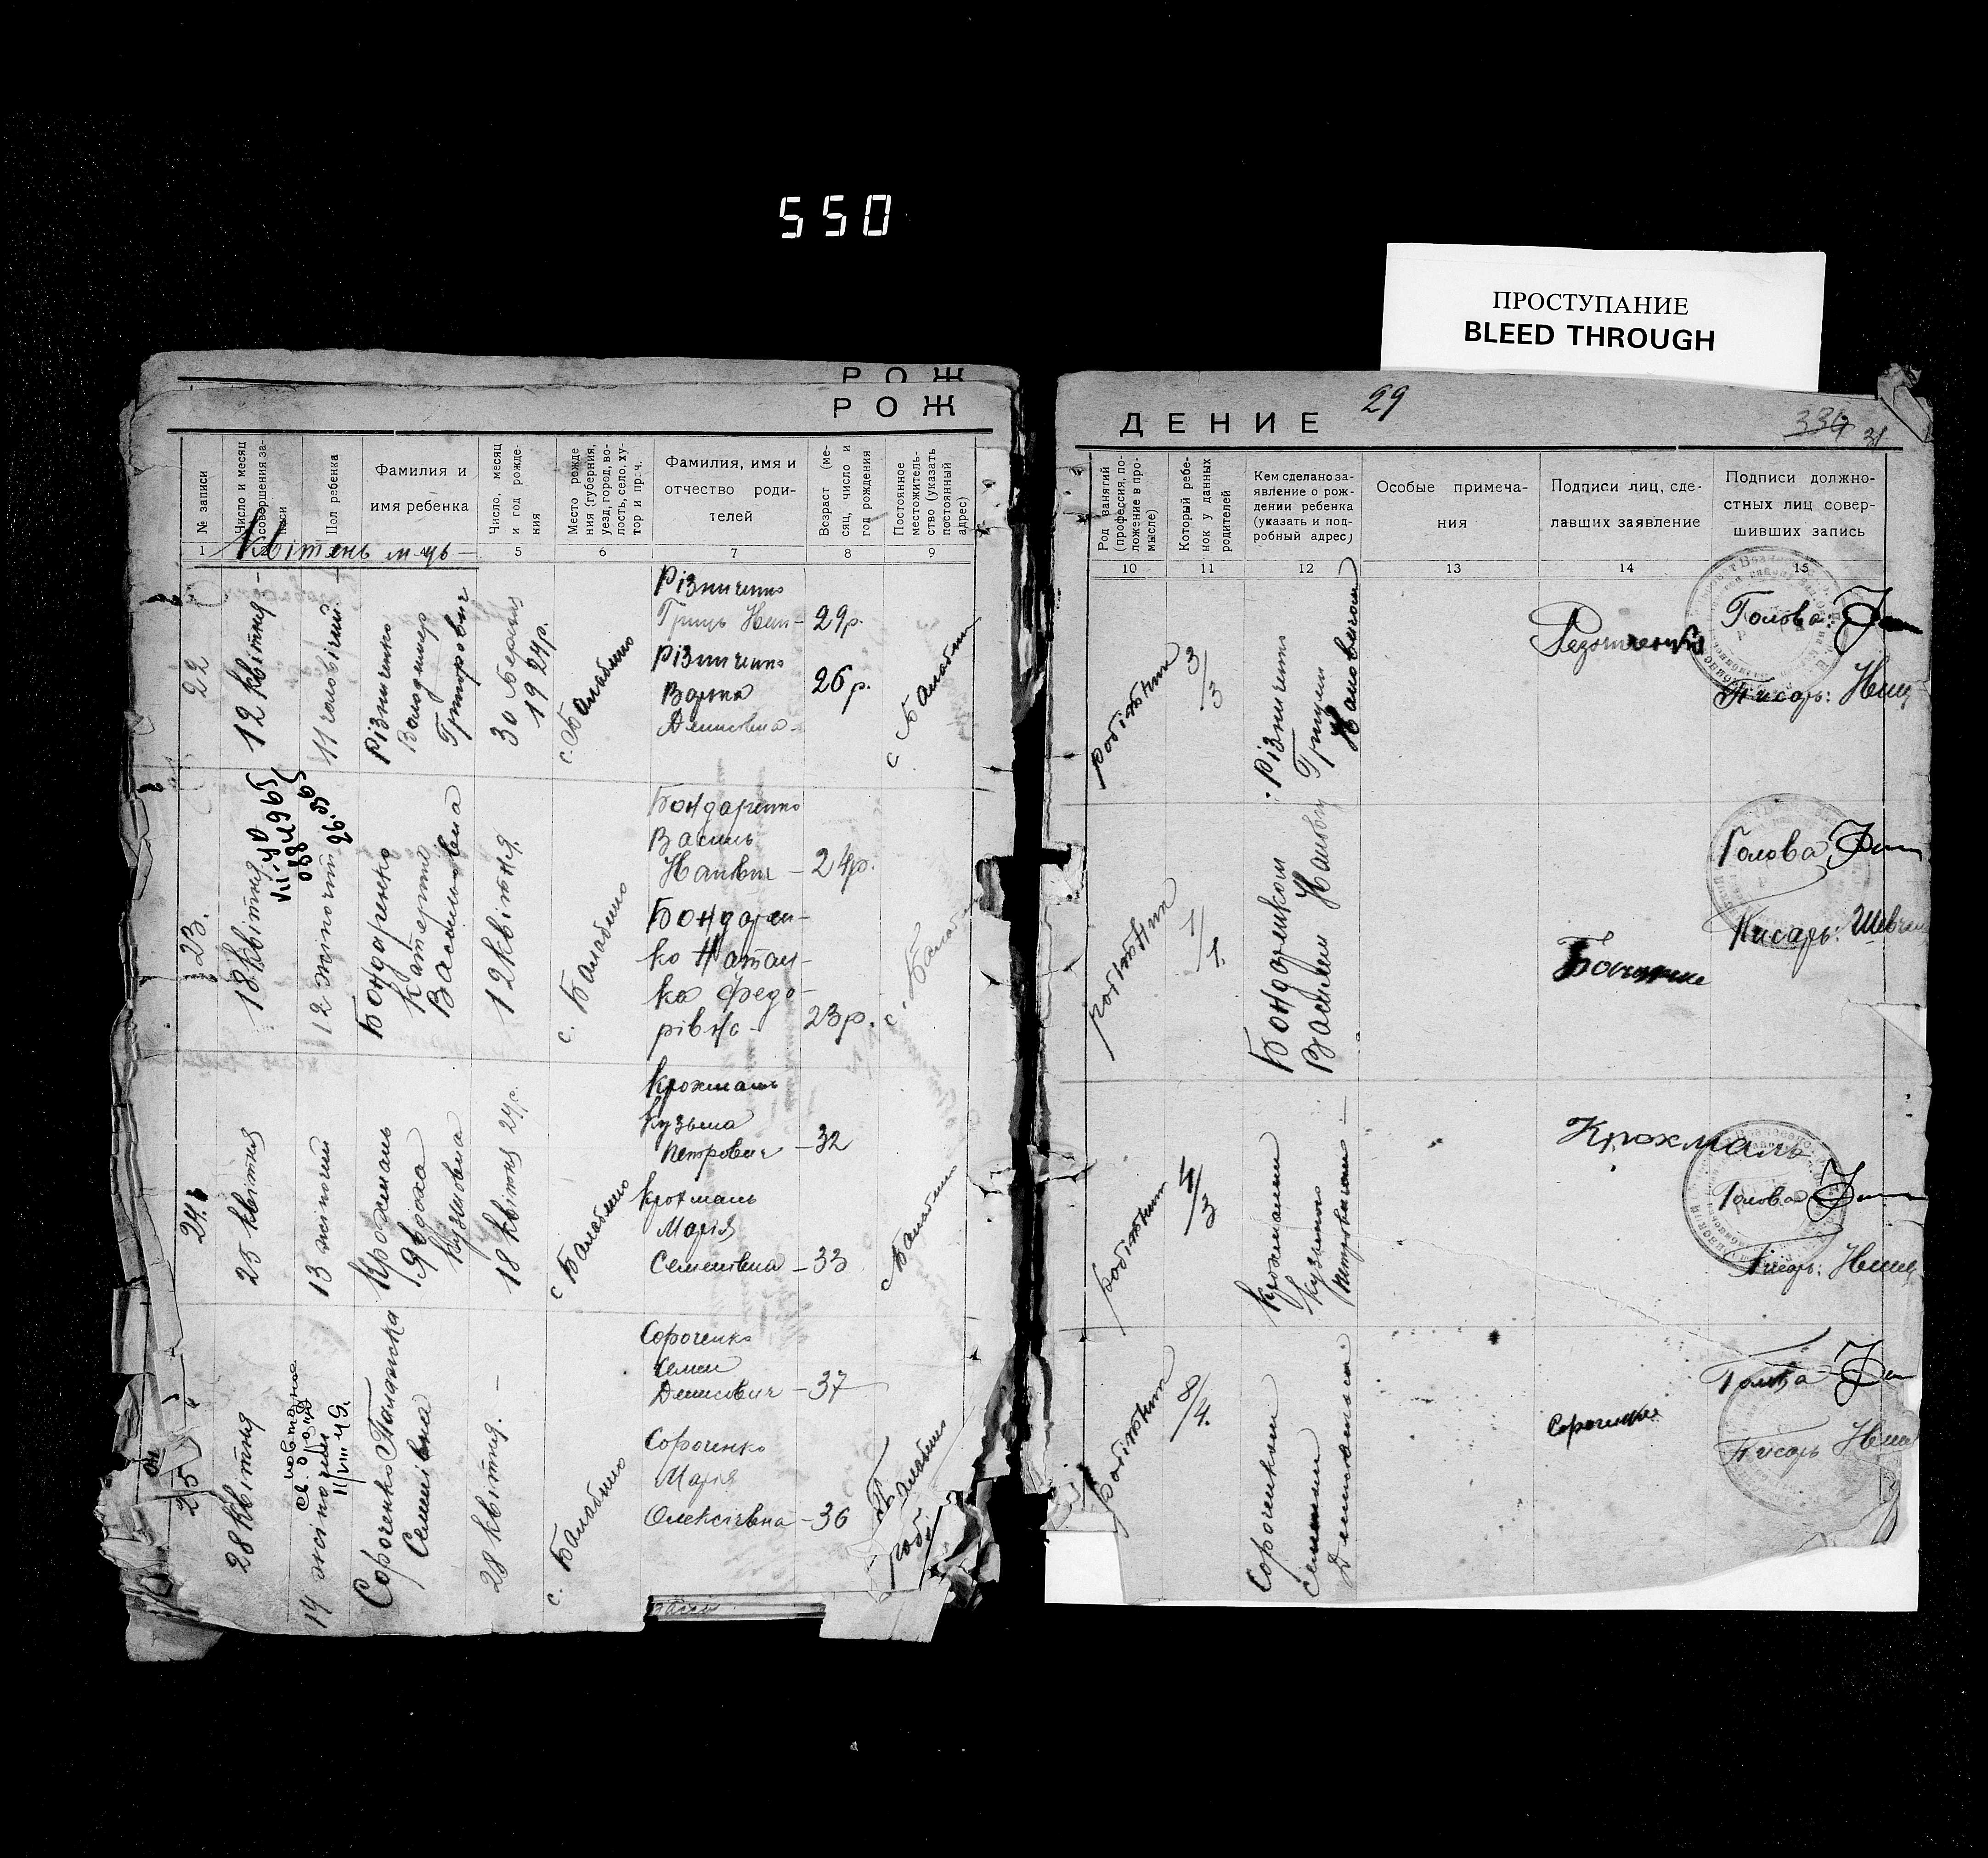 550
ПРОСТУПАНИЕ
BLEED THROUGH
РОЖ
РОЖ
ДЕНИЕ
29
334
31
№ записи
Число и месяц
совершения за-
писи
Пол ребенка
Фамилия и
имя ребенка
Число, месяц
и год рожде-
ния
Место рожде
ния (губерния,
уезд, город, во-
лость, село, ху-
тор и пр.ч.
Фамилия, имя и
отчество роди-
телей
Возраст (ме-
сяц, число и
год рождения
Постоянное
местожитель-
ство (указать
постоянный
адрес)
Род занятий
(профессия, по-
ложение в про-
мысле)
Который ребе-
нок у данных
родителей
Кем сделано за-
явление о рож-
дении ребенка
(указать и под-
робный адрес)
Особые примеча-
ния
Подписи лиц, сде-
лавших заявление
Подписи должно-
стных лиц совер-
шивших запись
1
5
6
7
8
9
10
11
12
13
14
15
Квітень м-ць
22
12 квітня
11 чоловічий
Різниченко
Володимер
Григорович
30 березня
1924р.
с. Балабино
Різниченко
Гриць
29р.
Різниченко
Варка
Денисівна
26р.
с Балабин
робітник
3/3
Різниченко
Грицем
Голова:
Писарь:
23.
18 квітня
12 жіночий
Бондаренко
Катерина
Василівна
12 квітня.
с. Балабино
Бондаренко
Василь
24р.
Бондарен-
ко Натал-
ка Федо-
рівна
23р.
с. Балаб
робітник
1/1.
Василем
Голова
Писарь: Шевч
24.
25 квітня
13 жіночий
Крохмаль
Явдоха
Кузмовна
18 квітня 24р.
с Балабино
Крохмаль
Кузьма
Петрович
32
Крохмаль
Марія
Семенівна
33
с Балабино
робітник
4/3
Крохмалем
Кузьмою
Петровичом
Крохмаль
Голова
Писарь:
25
28 квітня
14 жіночий
Св. повторне
видано
11/VIII 49.
Сороченко Паланка
Семенівна
28 квітня.
с. Балабино
Сороченко
Семен
Денисович
37
Сороченко
Марія
Олексіївна
36
Балабино
робітник
8/4.
Сороченком
Семеном
Денисовичом
Сороченко
Голова
Писарь